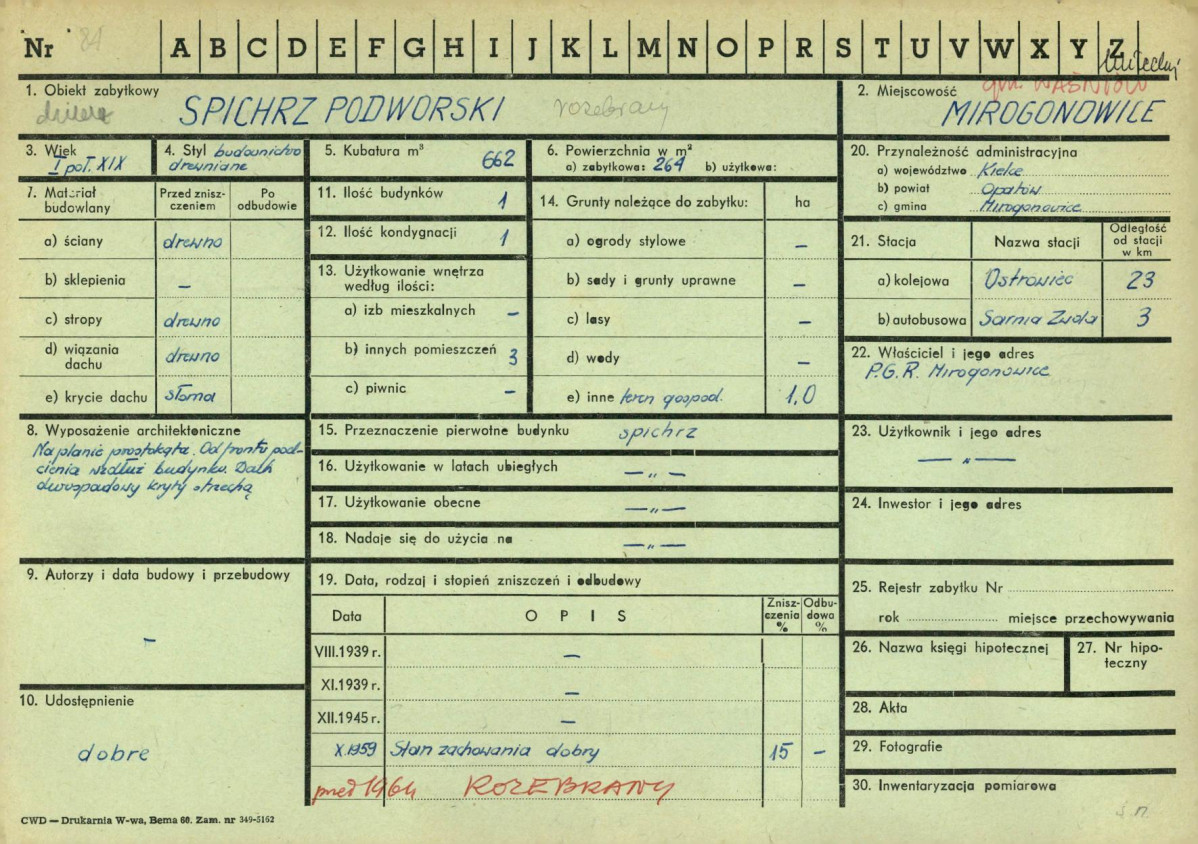 Nr 81 A B C D E F G H I J K L M N O P R S T U V W X Y Z
1. Obiekt zabytkowy
SPICHRZ PODWORSKI rozebrany
2. Miejscowość gm. WAŚNIÓW
MIROGONOWICE
3. Wiek
I poł. XIX
4. Styl budownictwo
drewniane
5. Kubatura m³ 662
6. Powierzchnia w m²
a) zabytkowa: 264 b) użytkowa:
20. Przynależność administracyjna
a) województwo Kielce
b) powiat Opatów
c) gmina Mirogonowice
7. Materiał budowlany
Przed zniszczeniem
Po odbudowie
a) ściany drewno
b) sklepienia –
c) stropy drewno
d) wiązania dachu drewno
e) krycie dachu słoma
11. Ilość budynków 1
12. Ilość kondygnacji 1
13. Użytkowanie wnętrza
według ilości:
a) izb mieszkalnych –
b) innych pomieszczeń 3
c) piwnic –
14. Grunty należące do zabytku: ha
a) ogrody stylowe –
b) sady i grunty uprawne –
c) lasy –
d) wody –
e) inne teren gospod. 1,0
21. Stacja Nazwa stacji
Odległość
od stacji
w km
a) kolejowa Ostrowiec 23
b) autobusowa Sarnia Zwola 3
22. Właściciel i jego adres
P.G.R. Mirogonowice
8. Wyposażenie architektoniczne
Na planie prostokąta. Od frontu pod-
cienia wzdłuż budynku. Dach
dwuspadowy kryty strzechą
15. Przeznaczenie pierwotne budynku spichrz
16. Użytkowanie w latach ubiegłych — „ —
17. Użytkowanie obecne — „ —
18. Nadaje się do użycia na — „ —
23. Użytkownik i jego adres
— „ —
24. Inwestor i jego adres
9. Autorzy i data budowy i przebudowy
–
10. Udostępnienie
dobre
19. Data, rodzaj i stopień zniszczeń i odbudowy
Data OPIS
Znisz-
czenia
%
Odbu-
dowa
%
VIII.1939 r. –
XI.1939 r. –
XII.1945 r. –
X.1959 Stan zachowania dobry 15 –
przed 1964 ROZEBRANY
25. Rejestr zabytku Nr
rok miejsce przechowywania
26. Nazwa księgi hipotecznej
27. Nr hipo-
teczny
28. Akta
29. Fotografie
30. Inwentaryzacja pomiarowa
CWD — Drukarnia W-wa, Bema 60. Zam. nr 349-5162